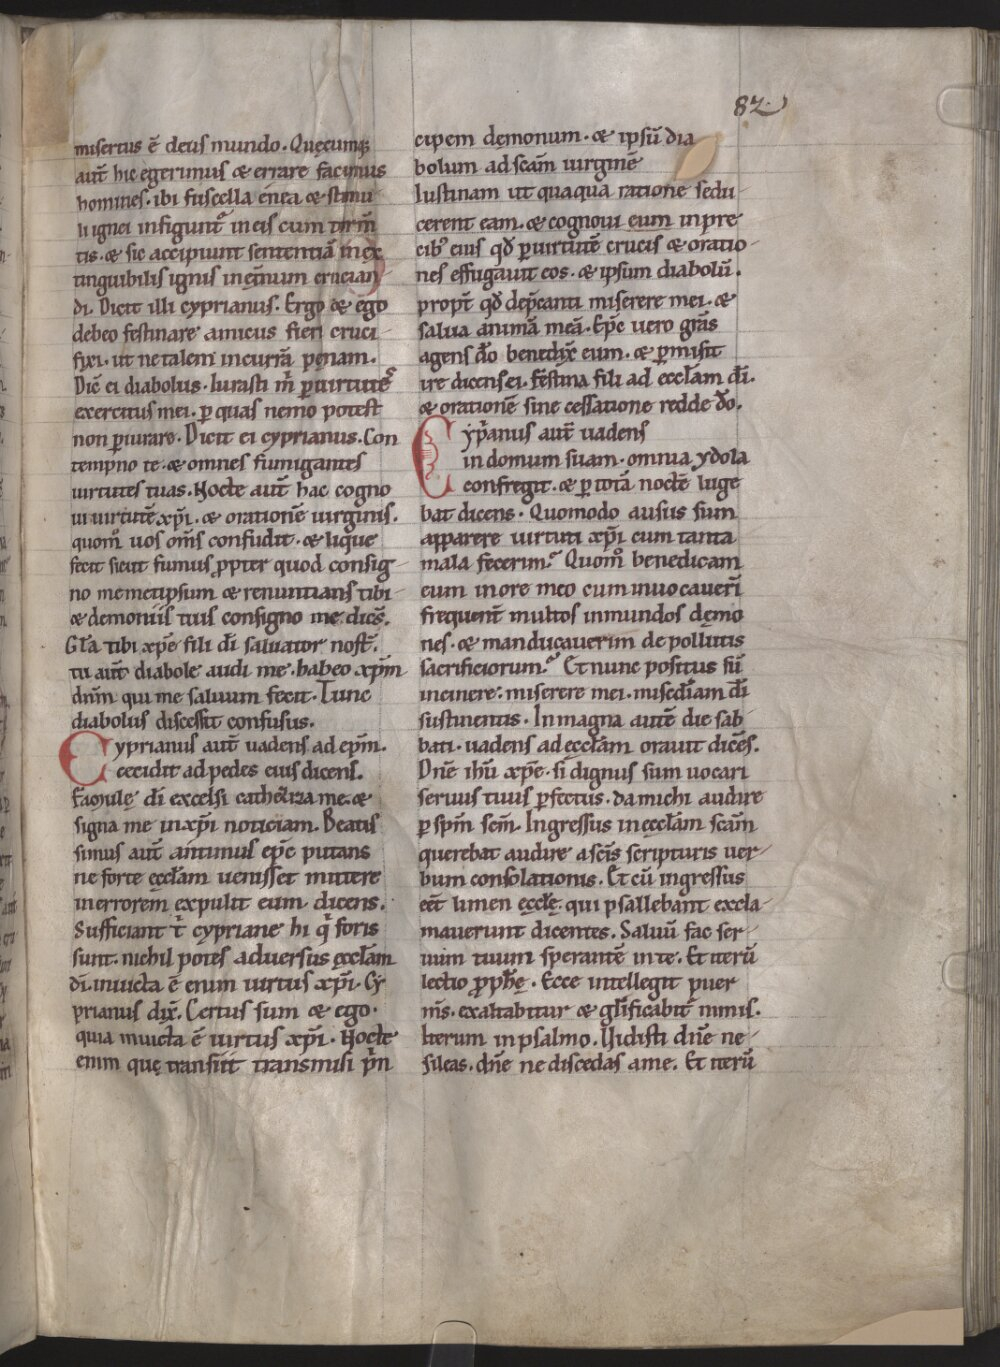 82
misertus ē deus mundo. Quęcumq;
aut̄ hic egerimus & errare facimus
homines. ibi fuscella enea & stimu
li ignei infigunt᷑ in eis cum torm̄
tis. & sic accipiunt sententiā inex
tinguibilis ignis inęt̄num crucian
di. Dicit illi cyprianus. Ergo & ego
debeo festinare amicus fieri cruci
fixi. ut ne talem incurrā penam.
Dic̄ ei diabolus. Iurasti m̄ ꝑ uirtutes
exercitus mei. ꝑ quas nemo potest
non ꝑiurare. Dicit ei cyprianus. Con
tempno te. & omnes fumigantes
uirtutes tuas. Nocte aut̄ hac cogno
ui uirtutē xp̄i. & orationē uirginis.
quom̊ uos om̄s confudit. & lique
fecit sicut fumus ꝓpter quod consig
no memetipsum & renuntians tibi
& demoniis tuis consigno me dicēs.
Gl̄a tibi xp̄e fili dī saluator nost̄.
tu aut̄ diabole audi me. habeo xp̄m
dn̄m qui me saluum fecit. Tunc
diabolus discessit confusus.
Cyprianus aut̄ uadens ad ep̄m.
cecidit ad pedes eius dicens.
Famulę dī excelsi catheriza me. &
signa me in xp̄i noticiam. Beatis
simus aut̄ antimus ep̄c putans
ne forte ęccl̄am uenisset mittere
in errorem expulit eum dicens.
Sufficiant t̄ cypriane hi q̄ foris
sunt. nichil potes aduersus ęccl̄am
dī. inuicta ē enim uirtus xp̄i. Cy
prianus dix̄. Certus sum & ego.
quia inuicta ē uirtus xp̄i. Nocte
enim quę transiit transmisi p̄n
cipem dęmonum. & ipsū dia
bolum ad sc̄am uirginē
Iustinam ut quaqua ratione sedu
cerent eam. & cognoui eum in pre
cib; eius qd̄ ꝑ uirtutē crucis & oratio
nes effugauit eos. & ipsum diabolū.
propt̄ qd̄ dep̄canti miserere mei. &
salua animā meā. Ep̄c uero gr̄as
agens dō benedix̄ eum. & ꝑmisit
ire dicens ei. Festina fili ad eccl̄am dī.
& orationē sine cessatione redde dō.
Cyp̄anus aut̄ uadens
in domum suam. omnia ydola
confregit. & ꝑ totā noctē luge
bat dicens. Quomodo ausus sum
apparere uirtuti xp̄i cum tanta
mala fecerim? Quom̊ benedicam
eum in ore meo cum inuocauerī
frequent̄ multos inmundos dęmo
nes. & manducauerim de pollutis
sacrificiorum? Et nunc positus sū
in cinere: miserere mei. misedīam dī
sustinentis. In magna autē die sab
bati. uadens ad ęccl̄am orauit dicēs.
Dn̄e ihū xp̄e. si dignus sum uocari
seruus tuus ꝑfectus. da michi audire
ꝑ sp̄m sc̄m. Ingressus in ęccl̄am sc̄am
querebat audire a sc̄is scripturis uer
bum consolationis. Et cū ingressus
eēt limen ęccl̄ę qui psallebant excla
mauerunt dicentes. Saluū fac ser
uum tuum sperantē in te. Et iterū
lectio ꝓph̄ę. Ecce intellegit puer
m̄s. exaltabitur & gl̄ificabit᷑ nimis.
Iterum in psalmo. Uidisti dn̄e ne
sileas. dn̄e ne discedas a me. Et iterū